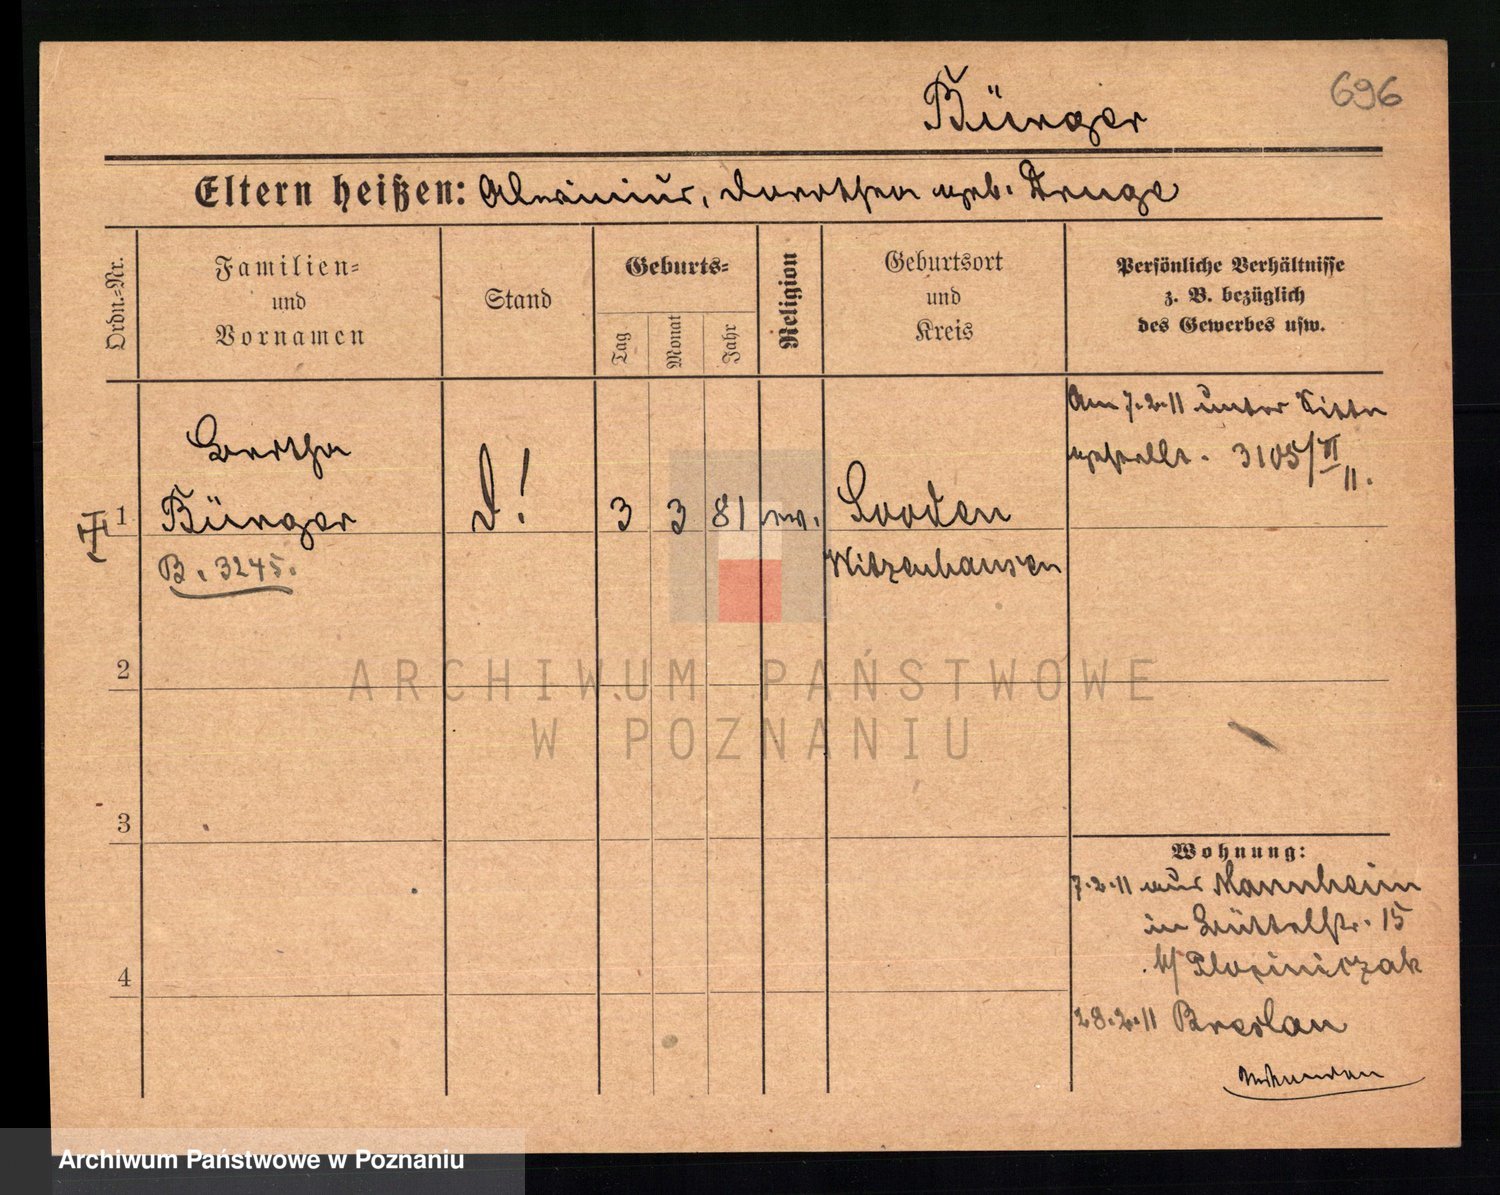 Bürger
696
Eltern heißen: Dorothea geb. Kruge
Ordn.-Nr.
Familien-
und
Vornamen
Stand
Geburts-
Tag
Monat
Jahr
Religion
Geburtsort
und
Kreis
Persönliche Verhältnisse
z. B. bezüglich
des Gewerbes usw.
Am 7.2.11 unter Sitte
gestellt. 3105/VI
11.
Bertha
1 Bürger D! 3 3 81 ev. Sooden
B. 3245.
Witzenhausen
2
ARCHIWUM PAŃSTWOWE
W POZNANIU
3
Wohnung:
7.2.11 aus Mannheim
in Büttelstr. 15
b/
4
28.2.11 Breslau
Archiwum Państwowe w Poznaniu